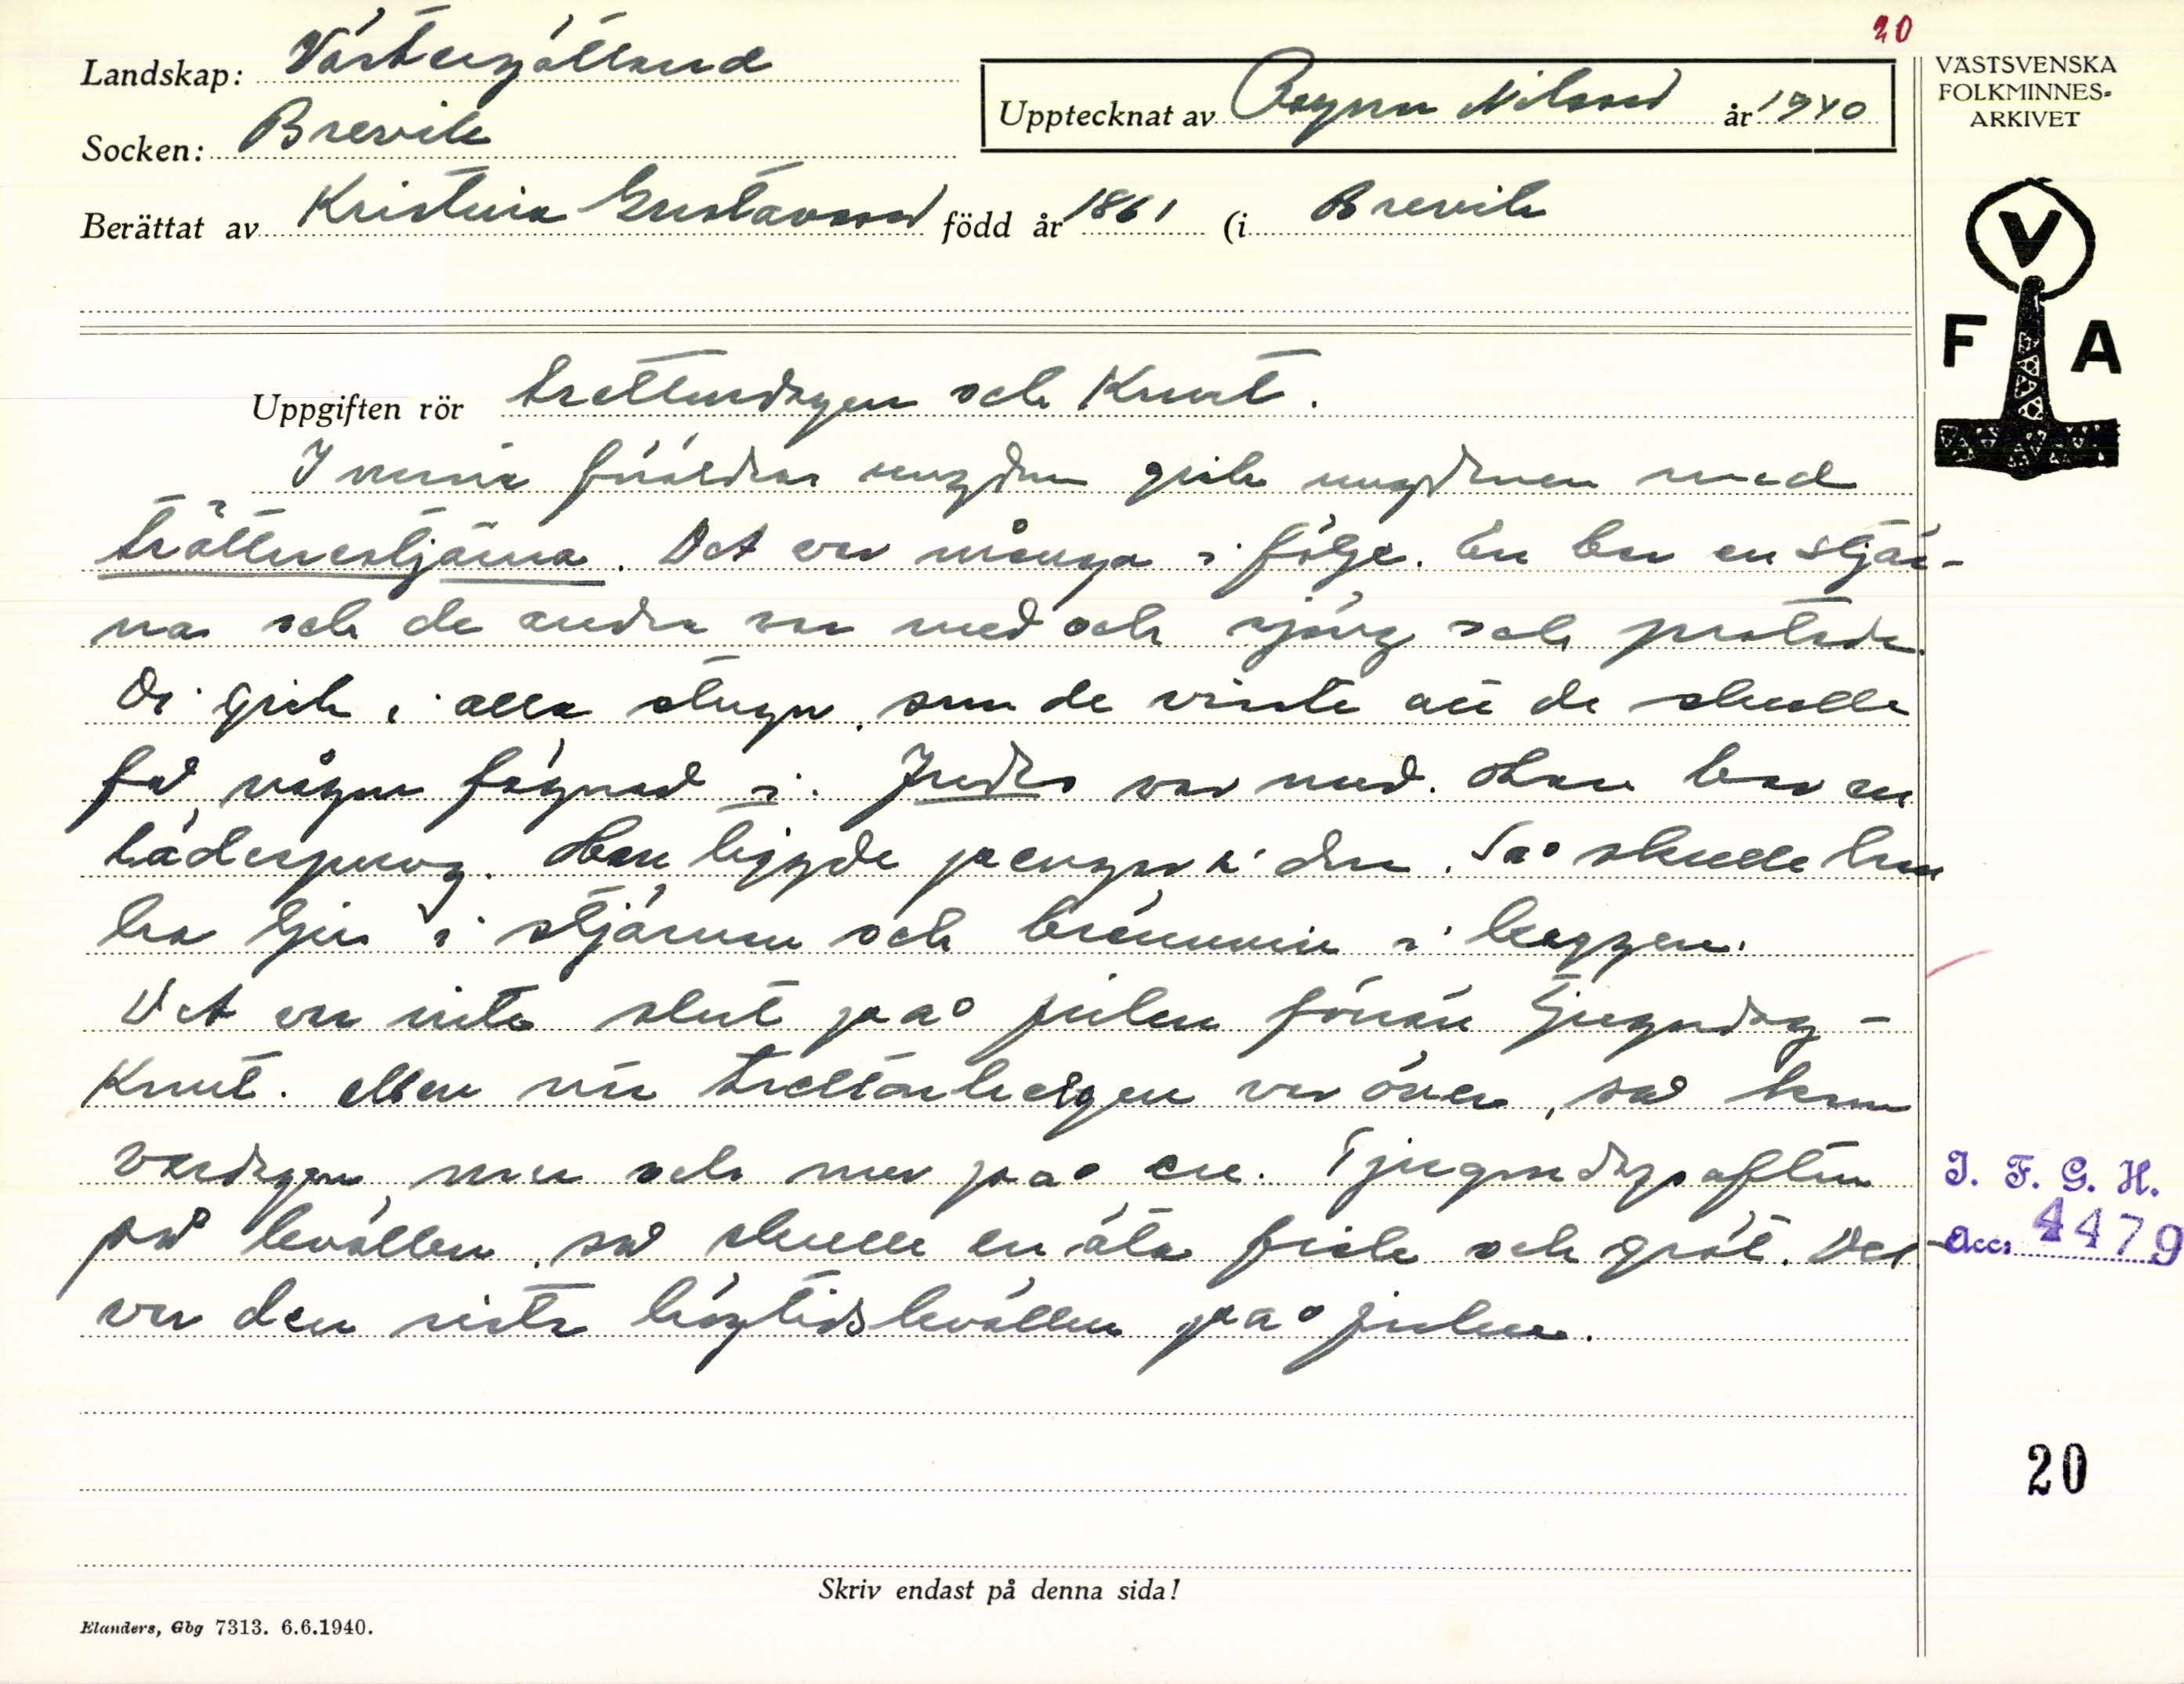 20
Landskap: Västergötland
Socken: Brevik
Upptecknat av Ragnar Nilsson år 1940
Berättat av Kristina Gustavsson född år 1861 (i Brevik
VÄSTSVENSKA
FOLKMINNES-
ARKIVET
V
F A
Uppgiften rör trettondagen och Knut.
I mina föräldrar ungdom gick ungdomen med
trättenstjärna. Det var många i följe. En bar en stjär-
na och de andra var med och sjöng och pratade.
De gick i alla stugor, som de visste att de skulle
få någon fägnad i. Judas var med. Han bar en
läderpung. Han tiggde pengar i den. Så skulle han
ha ljus i stjärnan och brännvin i kaggen.
Det var inte slut på julen förrän Tjugondag-
Knut. Men när trettonhelgen var över, så kom
vardagen mer och mer på en. Tjugondagsafton
på kvällen, så skulle en äta fisk och gröt. Det
var den sista högtidskvällen på julen.
I. F. G. H.
Acc. 4479
20
Skriv endast på denna sida!
Elanders, Gbg 7313. 6.6.1940.